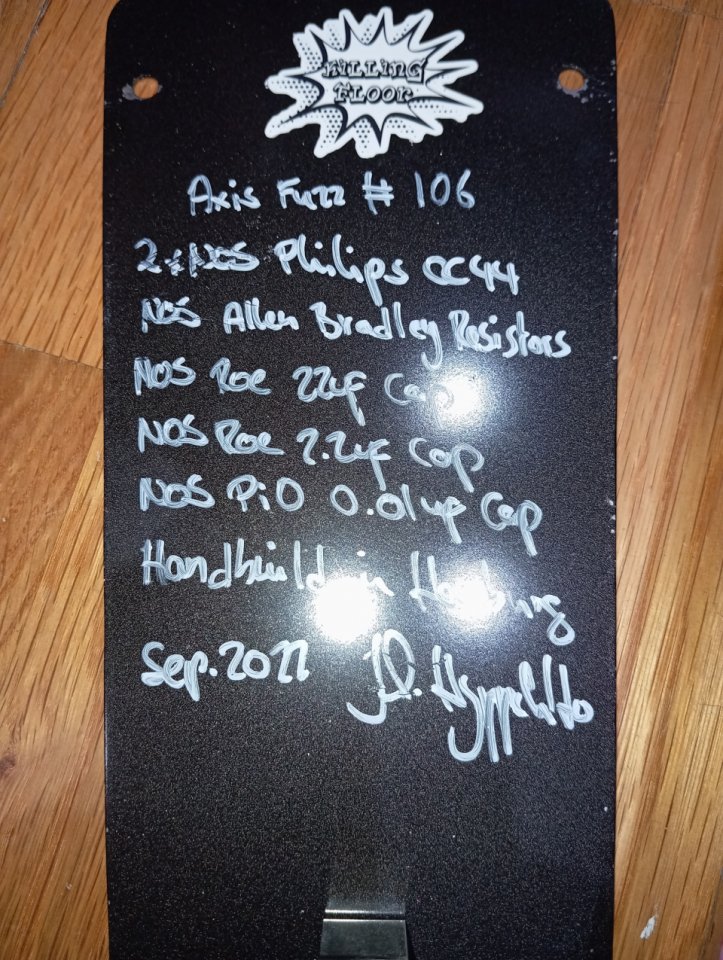 KILLING
FLOOR
Axis Fuzz # 106
2x NOS Philips OC44
NOS Allen Bradley Resistors
NOS Roe 22uf Cap
NOS Roe 2.2uf Cap
NOS PiO 0.01uf Cap
Handbuild in Hamburg
Sep. 2022